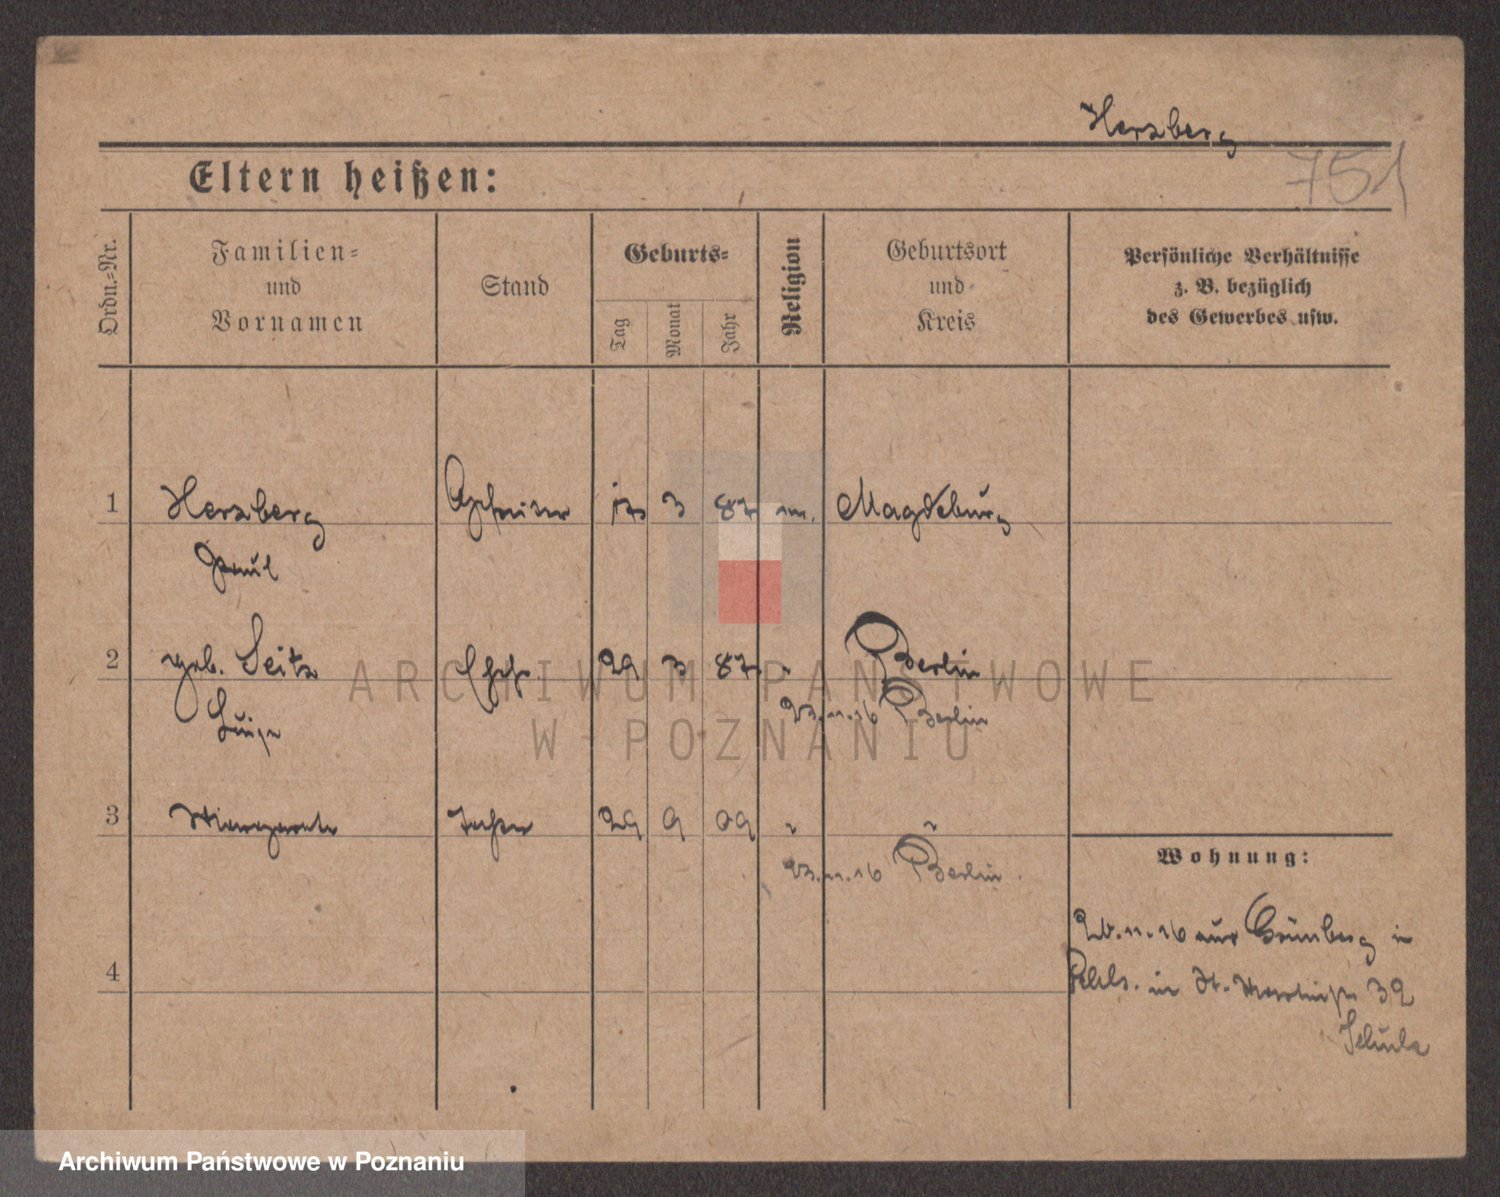 Herzberg
751
Eltern heißen:
Ordn.-Nr.
Familien-
und
Vornamen
Stand
Geburts-
Tag
Monat
Jahr
Religion
Geburtsort
und
Kreis
Persönliche Verhältnisse
z. B. bezüglich
des Gewerbes usw.
1 Herzberg 3 87 Magdeburg
Paul
2 geb. Seitz Ehefr. 29 3 87 " Berlin
Luise 23.11.16 Berlin
3 Margarete Tochter 29 9 09 " "
23.11.16 Berlin
Wohnung:
11.16 aus Grünberg in
in St. Martinstr 39
Schulz
4
ARCHIWUM PAŃSTWOWE
W POZNANIU
Archiwum Państwowe w Poznaniu